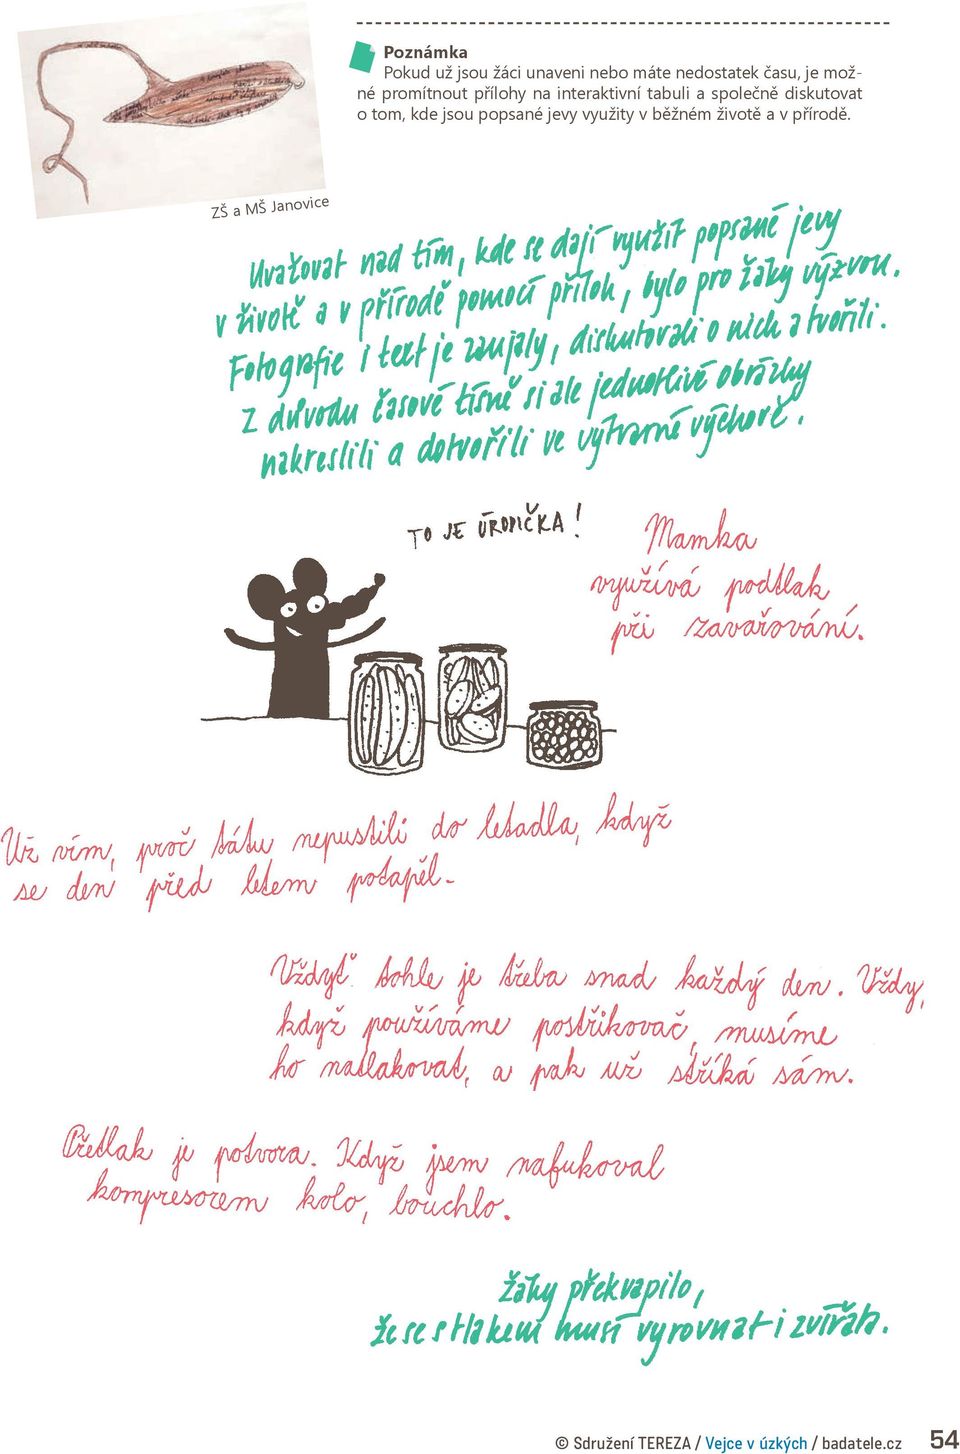 Poznámka
Pokud už jsou žáci unaveni nebo máte nedostatek času, je mož-
né promítnout přílohy na interaktivní tabuli a společně diskutovat
o tom, kde jsou popsané jevy využity v běžném životě a v přírodě.
ZŠ a MŠ Janovice
Uvažovat nad tím, kde se dají využít popsané jevy
v životě a v přírodě pomocí příloh, bylo pro žáky výzvou.
Fotografie i text je zaujaly, diskutovali o nich a tvořili.
Z důvodu časové tísně si ale jednotlivé obrázky
nakreslili a dotvořili ve výtvarné výchově.
TO JE ÚRODIČKA!
Mamka
využívá podtlak
při zavařování.
Už vím, proč tátu nepustili do letadla, když
se den před letem potápěl.
Vždyť tohle je třeba snad každý den. Vždy,
když používáme postřikovač, musíme
ho natlakovat, a pak už stříká sám.
Přetlak je potvora. Když jsem nafukoval
kompresorem kolo, bouchlo.
Žáky překvapilo,
že se s tlakem musí vyrovnat i zvířata.
© Sdružení TEREZA / Vejce v úzkých / badatele.cz 54